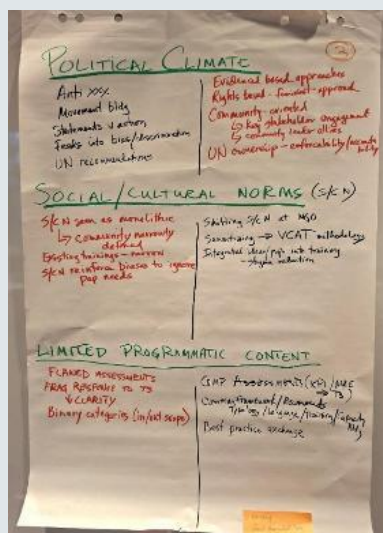 2
POLITICAL CLIMATE
Anti xxx
Movement bldg
Statements v action
Freaks into bias/discrimination
UN recommendations
Evidence based approaches
Rights based - feminist - approach
Community-oriented
↳ key stakeholder engagement
↳ community leader allies
UN ownership - enforceability/accountability
SOCIAL/CULTURAL NORMS (S/C N)
S/C N seen as monolithic
↳ community narrowly
defined
Existing trainings - narrow
S/C N reinforce biases to ignore
pop needs
Shifting S/C N at NGO
→ VCAT methodology
Integrated into training
- stigma reduction
LIMITED PROGRAMMATIC CONTENT
FLAWED ASSESSMENTS
FRAG RESPONSE TO
↓ CLARITY
Binary categories (in/out scope)
Assessments
Common framework/
language/training/
Best practice exchange